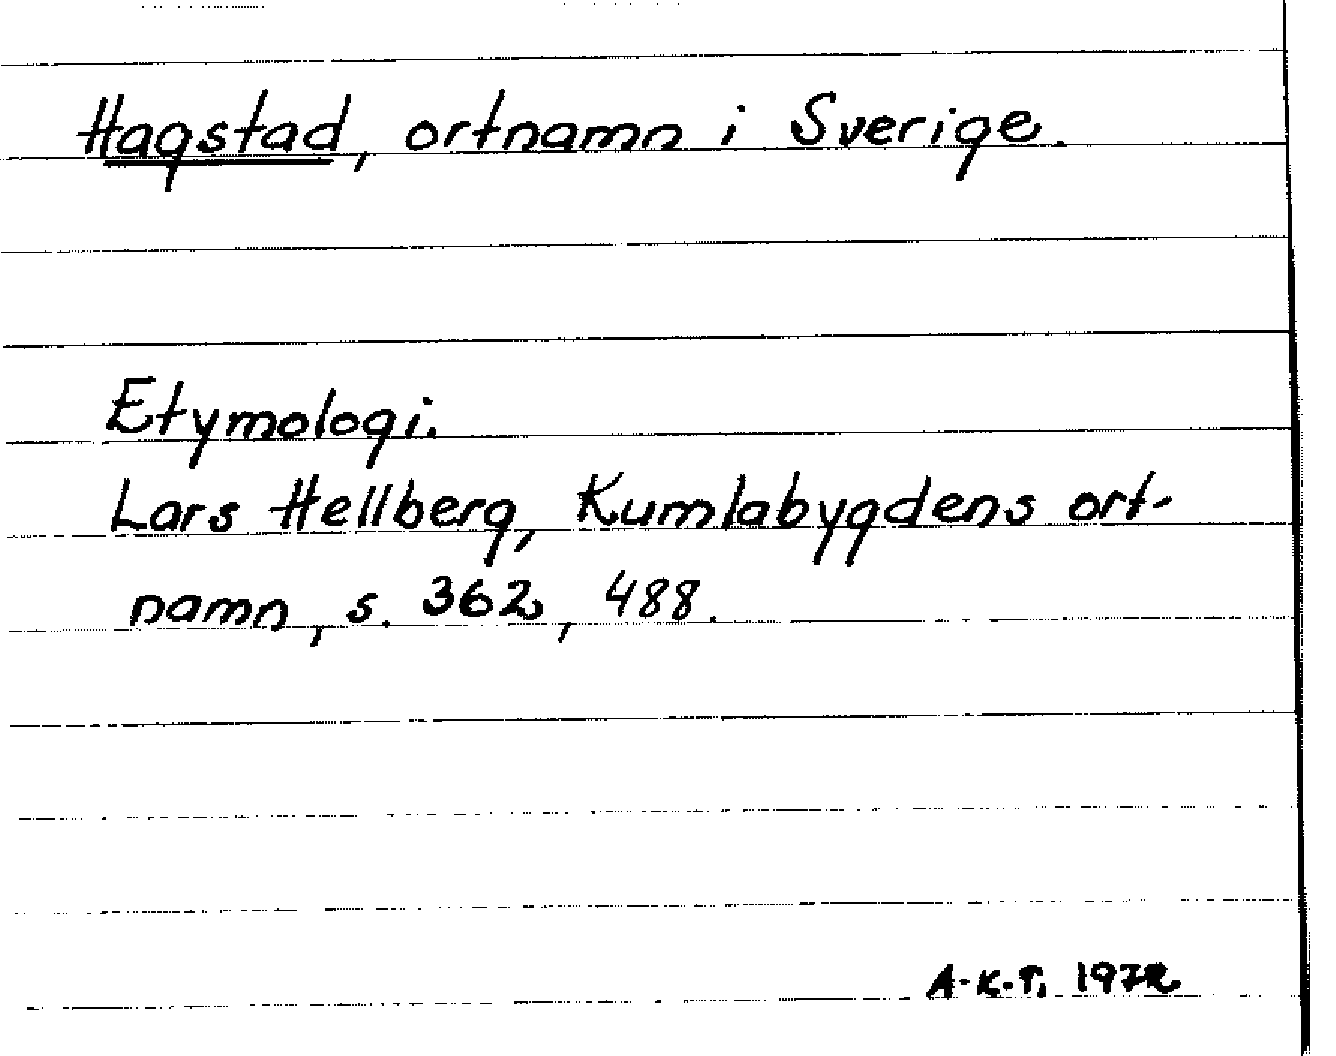 Hagstad, ortnamn i Sverige.
Etymologi.
Lars Hellberg, Kumlabygdens ort-
namn, s. 362, 488.
A.K.T. 1972